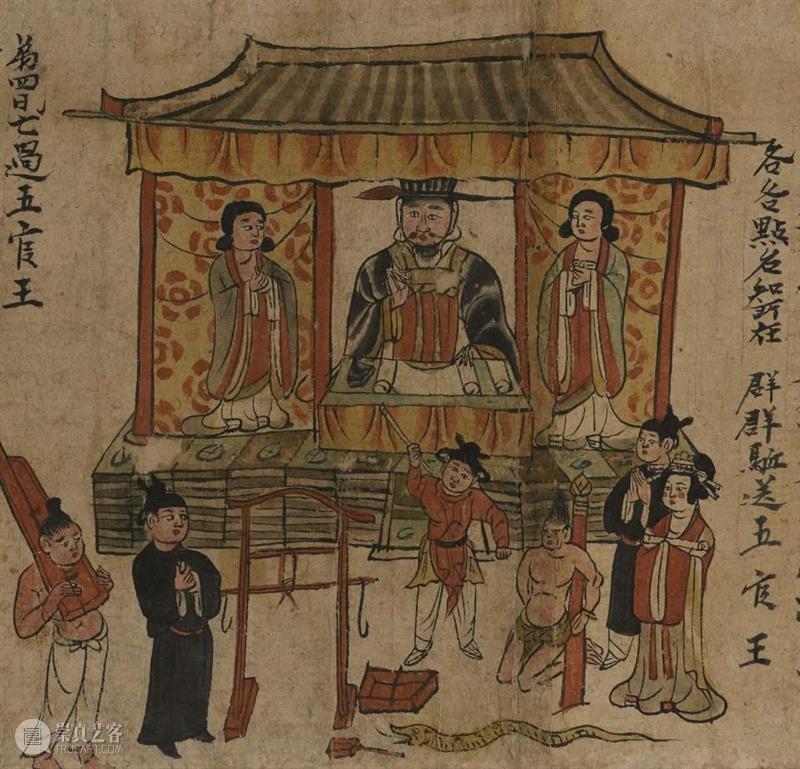 各各點名知所在 群群駈送五官王
弟四日七過五官王
崇真艺客
TRUEART.COM